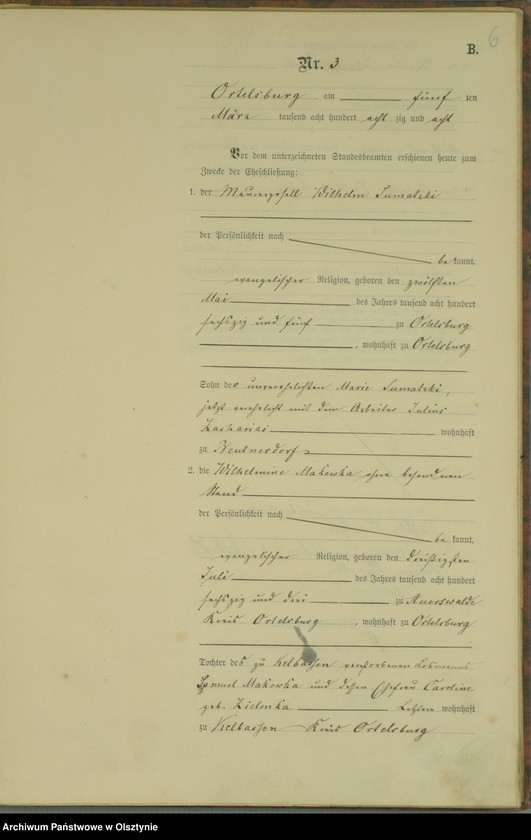 B. 6
Nr. 3
Ortelsburg am fünf ten
März tausend acht hundert acht zig und acht
Vor dem unterzeichneten Standesbeamten erschienen heute zum
Zwecke der Eheschließung:
1. der Maurergesell Wilhelm Sumatzki
der Persönlichkeit nach
be kannt,
evangelischer Religion, geboren den zwölften
Mai des Jahres tausend acht hundert
sechszig und fünf zu Ortelsburg
, wohnhaft zu Ortelsburg
Sohn der unverehelichten Marie Sumatzki,
jetzt verehelicht mit dem Arbeiter Julius
Zacharias wohnhaft
zu Beutnerdorf
2. die Wilhelmine Makowka ohne besonderen
Stand
der Persönlichkeit nach
be kannt,
evangelischer Religion, geboren den dreißigsten
Juli des Jahres tausend acht hundert
sechszig und drei zu Auerswalde
Kreis Ortelsburg , wohnhaft zu Ortelsburg
Tochter des zu Kelbassen verstorbenen Losmanns
Samuel Makowka und dessen Ehefrau Caroline
geb. Zielonka Letztere wohnhaft
zu Kelbassen Kreis Ortelsburg
Archiwum Państwowe w Olsztynie